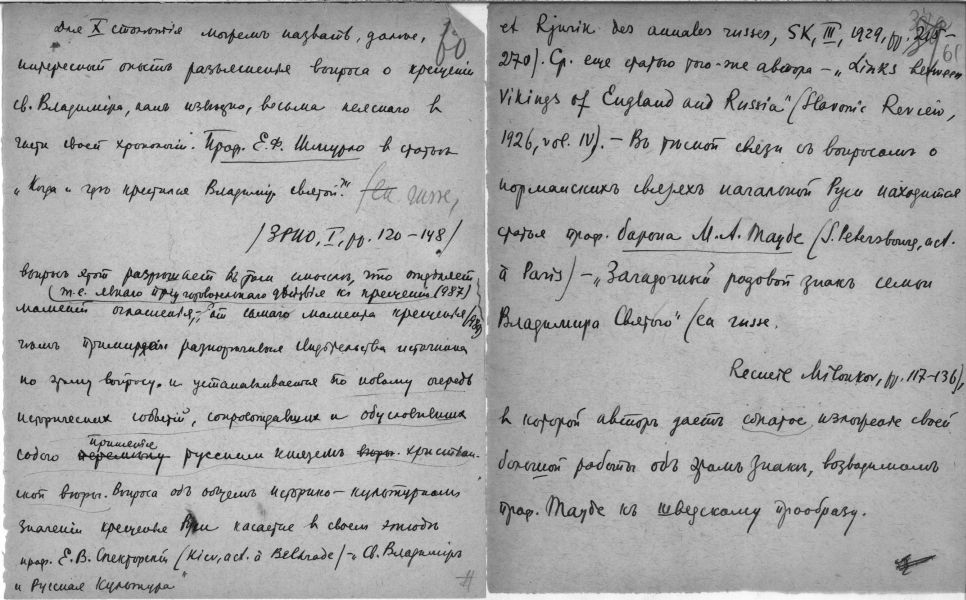 Для X столѣтія можемъ назвать, далѣе, 60
интересный опытъ разъясненія вопроса о крещеніи
св. Владиміра, какъ извѣстно, весьма неяснаго въ
части своей хронологіи. Проф. Е.Ф. Шмурло въ статьѣ
„Когда и гдѣ крестился Владиміръ Святой?" (en russe,
/ЗРИО, I, pp. 120–148/
вопросъ этотъ разрѣшаетъ въ томъ смыслѣ, что отдѣляетъ
(т.е. явнаго приуготовительнаго дѣйствія къ крещенію (987)
моментъ оглашенія, отъ самаго момента крещенія (989)
чѣмъ примиряетъ разнорѣчивыя свидѣтельства источниковъ
по этому вопросу. и устанавливается по новому очередь
историческихъ событій, сопровождавшихъ и обусловившихъ
принятіе
собою перемѣну русскимъ княземъ вѣры. христіан-
ской вѣры. Вопроса объ общемъ историко-культурномъ
значеніи крещенья Руси касается въ своемъ этюдѣ
проф. Е.В. Спекторскій (Kiev, act. à Belgrade) – „Св. Владиміръ
и Русская Культура"
61
et Rjurik des annales russes, SK, III, 1929, pp. 215–
270). Ср. еще статью того-же автора – „Links between
Vikings of England and Russia" (Slavonic Review,
1926, vol. IV). – Въ тѣсной связи съ вопросомъ о
норманскихъ связяхъ начальной Руси находится
статья проф. барона М.А. Таубе (S. Petersbourg, act.
à Paris) – „Загадочный родовой знакъ семьи
Владимира Святого" (en russe.
Recueil Miloukov, pp. 117–136),
въ которой авторъ даетъ сжатое изложеніе своей
большой работы объ этомъ знакѣ, возводимомъ
проф. Таубе къ шведскому прообразу.